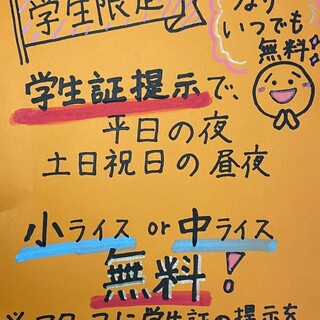 学生限定
なり
いつでも
無料!
学生証提示で、
平日の夜
土日祝日の昼夜
小ライス or 中ライス
無料!
に学生証の提示を